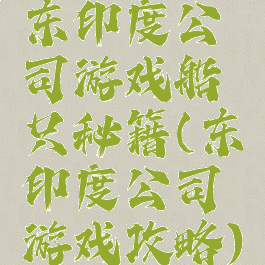 东印度公
司游戏船
只秘籍(东
印度公司
游戏攻略)